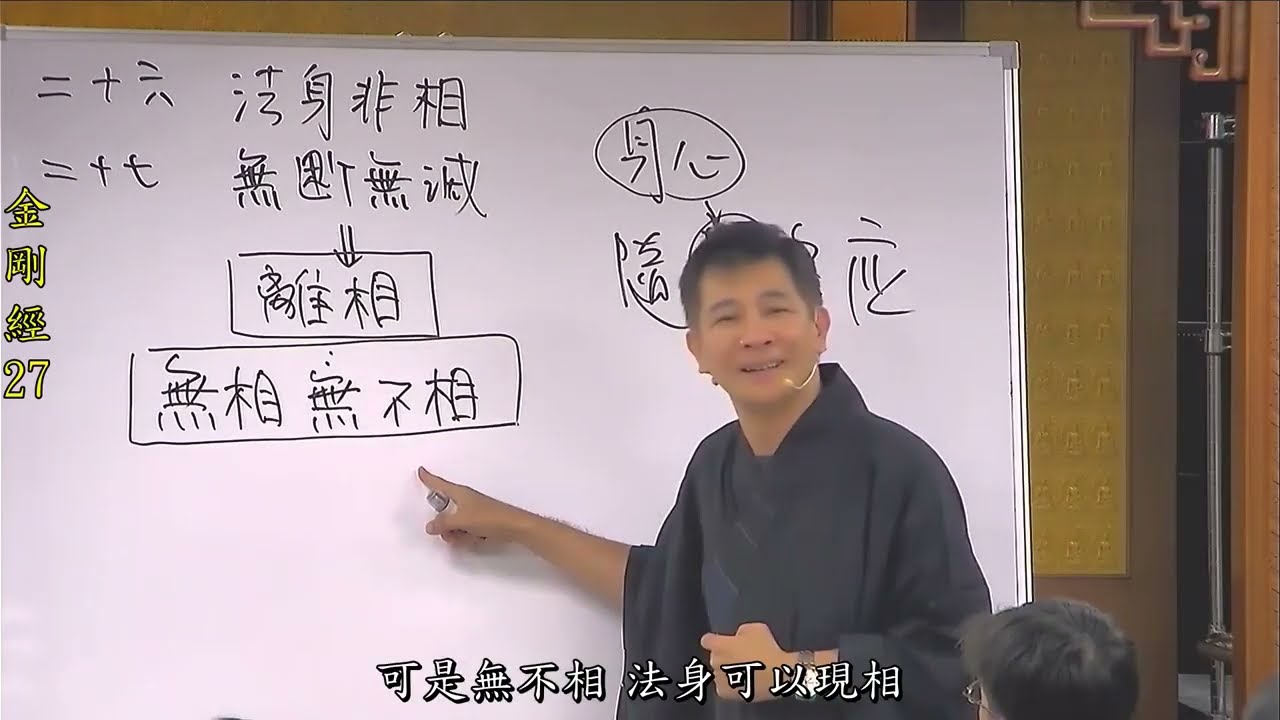 二十六 法身非相
二十七 無断無滅
離相
無相 無不相
身心
隨 应
金剛經27
可是無不相 法身可以現相